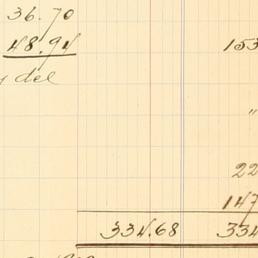 36.70
48.94 153
del
"
22
147
334.68 334